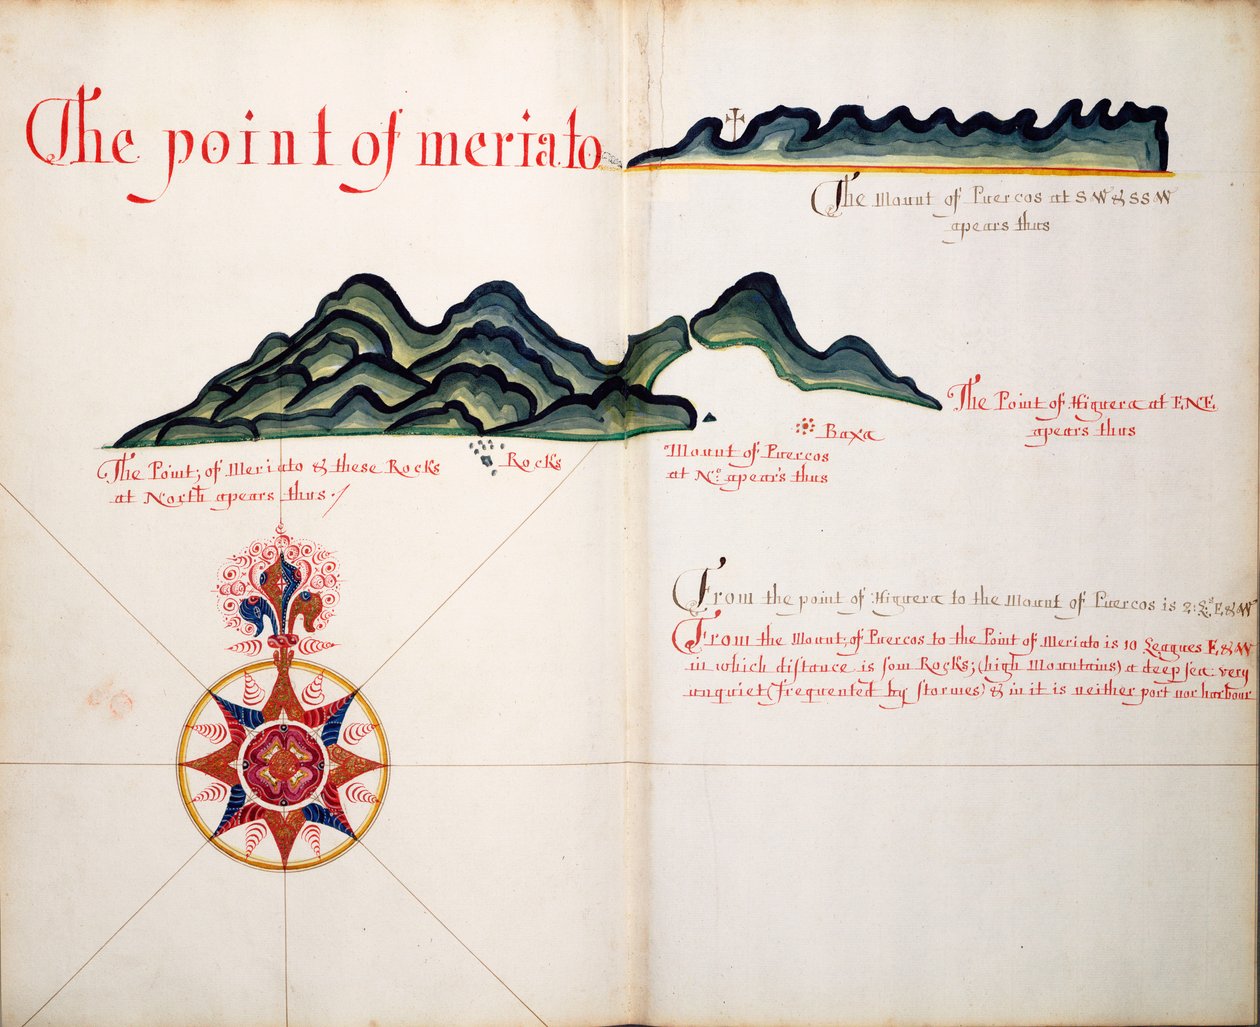 The point of meriato
The Mount of Puercos at SW & SSW
apears thus
The Point of Higuera at ENE
apears thus
Baxa
Mount of Puercos
at No: apears thus
Rocks
The Point; of Meriato & these Rocks
at North apears thus
From the point of Higuera to the Mount of Puercos is 2: Ls E & W
From the Mount; of Puercos to the Point of Meriato is 10 Leagues E, & W
in which distance is som Rocks; (high Mountains) a deep sea: very
unquiet (frequented by stormes) & in it is neither port nor harbour